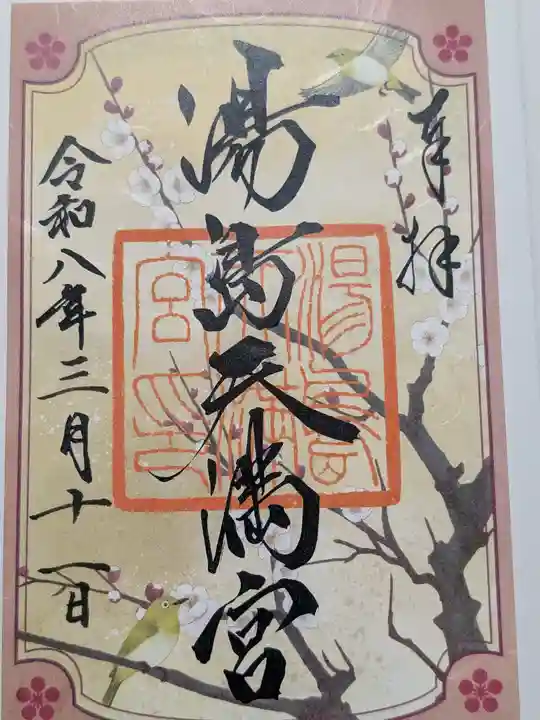 奉拝
湯島天満宮
湯島
天満
宮印
令和八年三月十一日